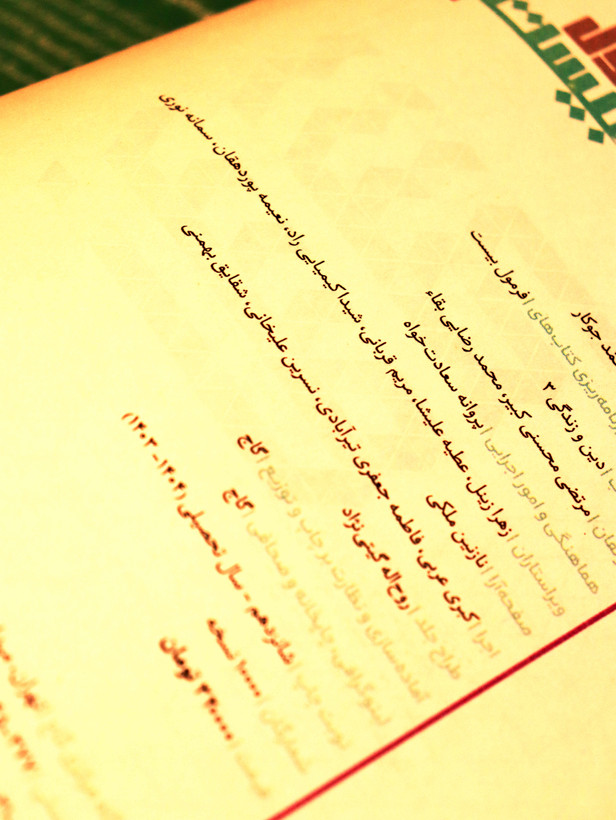 بیست
مد جوکار
برنامه‌ریزی کتاب‌های | فرمول بیست
| دین و زندگی ۳
| مرتضی محسنی کبیر، محمد رضایی بقاء
هماهنگی و امور اجرایی | پروانه سعادت‌خواه
ویراستاران | زهرا زینل، عطیه علیشا، مریم قربانی، شیدا کیمیایی راد، نعیمه پوردهقان، سمانه نوری
صفحه‌آرا | نازنین ملکی
اجرا | کبری عربی، فاطمه جعفری تیرآبادی، نسرین علیخانی، شقایق بهمنی
طراح جلد | روح‌اله گیتی‌نژاد
آماده‌سازی و نظارت بر چاپ و توزیع | گاج
لیتوگرافی، چاپخانه و صحافی | گاج
نوبت چاپ | شانزدهم - سال تحصیلی (۱۴۰۴-۱۴۰۳)
شمارگان | ۱۰۰۰۰ نسخه
قیمت | تومان
تهران،